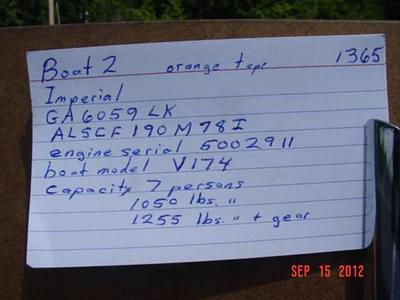 Boat 2 orange tape 1365
Imperial
GA 6059 LK
ALSCF190M78I
engine serial 5002911
boat model V174
capacity 7 persons
1050 lbs. "
1255 lbs. " + gear
SEP 15 2012